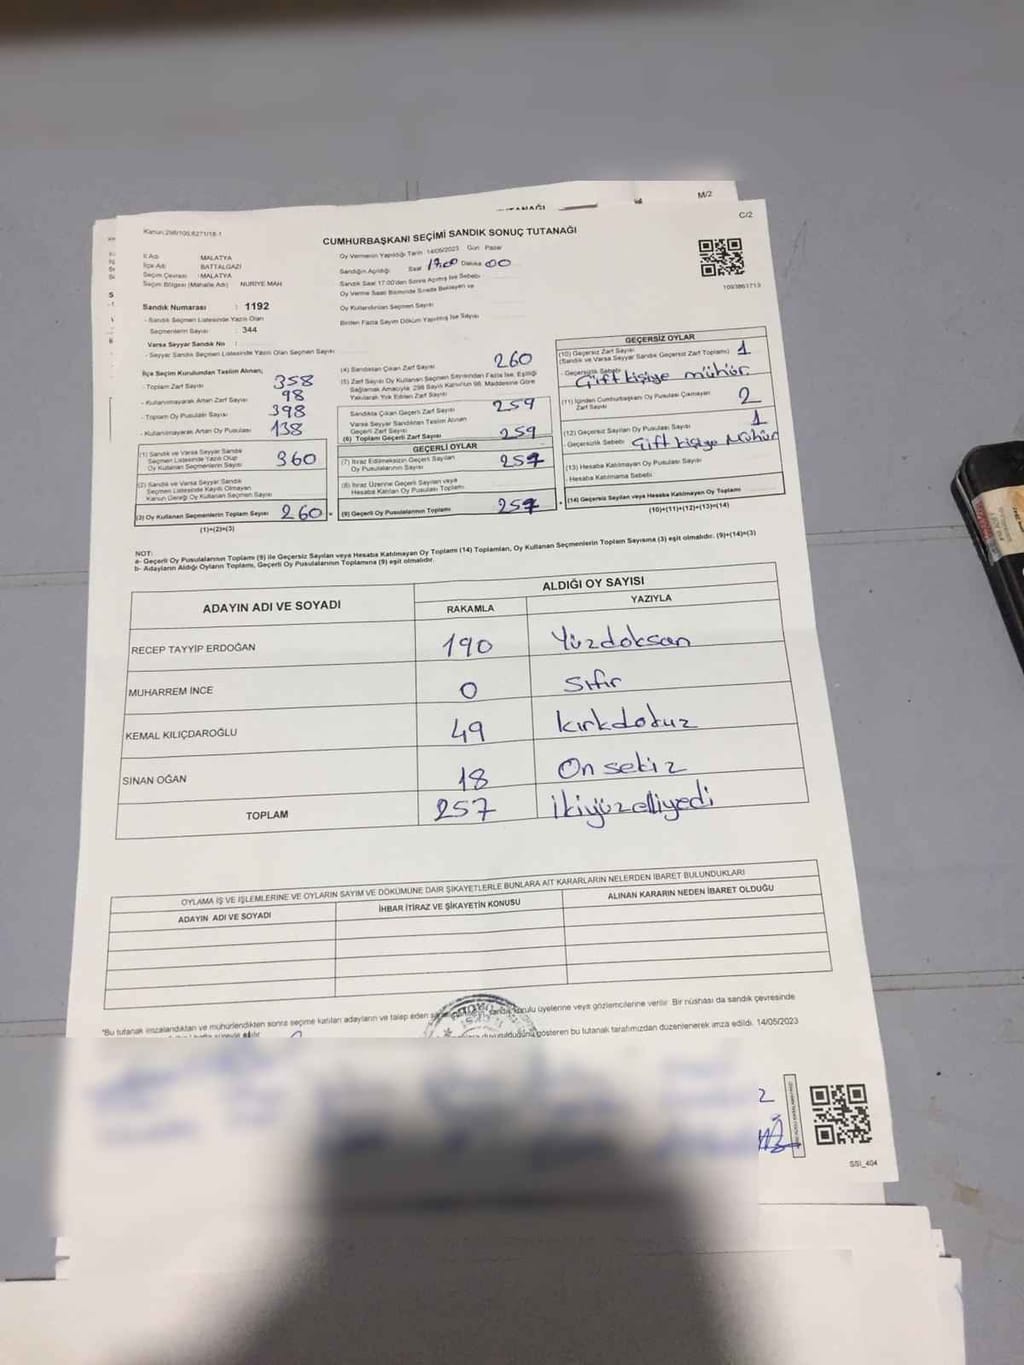 M/2
C/2
Kanun:298/105,6271/18-1
CUMHURBAŞKANI SEÇİMİ SANDIK SONUÇ TUTANAĞI
İl Adı : MALATYA
İlçe Adı : BATTALGAZİ
Seçim Çevresi : MALATYA
Seçim Bölgesi (Mahalle Adı) NURİYE MAH
Oy Vermenin Yapıldığı Tarih 14/05/2023 Gün Pazar
Sandığın Açıldığı Saat 17:00 Dakika 00
Sandık Saat 17.00'den Sonra Açılmış İse Sebebi
Oy Verme Saati Bitiminde Sırada Bekleyen ve
Oy Kullandırılan Seçmen Sayısı
Birden Fazla Sayım Döküm Yapılmış İse Sayısı
1093861713
Sandık Numarası : 1192
- Sandık Seçmen Listesinde Yazılı Olan
Seçmenlerin Sayısı : 344
Varsa Seyyar Sandık No :
- Seyyar Sandık Seçmen Listesinde Yazılı Olan Seçmen Sayısı
İlçe Seçim Kurulundan Teslim Alınan;
- Toplam Zarf Sayısı 358
- Kullanılmayarak Artan Zarf Sayısı 98
- Toplam Oy Pusulası Sayısı 398
- Kullanılmayarak Artan Oy Pusulası 138
(1) Sandık ve Varsa Seyyar Sandık
Seçmen Listesinde Yazılı Olup
Oy Kullanan Seçmenlerin Sayısı 360
(2) Sandık ve Varsa Seyyar Sandık
Seçmen Listesinde Kaydı Olmayan
Kanun Gereği Oy Kullanan Seçmen Sayısı
(3) Oy Kullanan Seçmenlerin Toplam Sayısı 260 =
(1)+(2)=(3)
(4) Sandıktan Çıkan Zarf Sayısı 260
(5) Zarf Sayısı Oy Kullanan Seçmen Sayısından Fazla İse, Eşitliği
Sağlamak Amacıyla, 298 Sayılı Kanun'un 98. Maddesine Göre
Yakılarak Yok Edilen Zarf Sayısı
Sandıkta Çıkan Geçerli Zarf Sayısı 259
Varsa Seyyar Sandıktan Teslim Alınan
Geçerli Zarf Sayısı
(6) Toplam Geçerli Zarf Sayısı 259
GEÇERLİ OYLAR
(7) İtiraz Edilmeksizin Geçerli Sayılan
Oy Pusulalarının Sayısı 257
(8) İtiraz Üzerine Geçerli Sayılan veya
Hesaba Katılan Oy Pusulası Toplamı
(9) Geçerli Oy Pusulalarının Toplamı 257 +
GEÇERSİZ OYLAR
(10) Geçersiz Zarf Sayısı
(Sandık ve Varsa Seyyar Sandık Geçersiz Zarf Toplamı) 1
- Geçersizlik Sebebi
Çift kişiye mühür
(11) İçinden Cumhurbaşkanı Oy Pusulası Çıkmayan
Zarf Sayısı 2
(12) Geçersiz Sayılan Oy Pusulası Sayısı 1
- Geçersizlik Sebebi Çift kişiye Mühür
(13) Hesaba Katılmayan Oy Pusulası Sayısı
- Hesaba Katılmama Sebebi
(14) Geçersiz Sayılan veya Hesaba Katılmayan Oy Toplamı
(10)+(11)+(12)+(13)=(14)
NOT:
a- Geçerli Oy Pusulalarının Toplamı (9) ile Geçersiz Sayılan veya Hesaba Katılmayan Oy Toplamı (14) Toplamları, Oy Kullanan Seçmenlerin Toplam Sayısına (3) eşit olmalıdır. (9)+(14)=(3)
b- Adayların Aldığı Oyların Toplamı, Geçerli Oy Pusulalarının Toplamına (9) eşit olmalıdır.
ADAYIN ADI VE SOYADI
ALDIĞI OY SAYISI
RAKAMLA YAZIYLA
RECEP TAYYİP ERDOĞAN 190 Yüzdoksan
MUHARREM İNCE 0 Sıfır
KEMAL KILIÇDAROĞLU 49 kırkdokuz
SİNAN OĞAN 18 On sekiz
TOPLAM 257 ikiyüzelliyedi
OYLAMA İŞ VE İŞLEMLERİNE VE OYLARIN SAYIM VE DÖKÜMÜNE DAİR ŞİKAYETLERLE BUNLARA AİT KARARLARIN NELERDEN İBARET BULUNDUKLARI
ADAYIN ADI VE SOYADI İHBAR İTİRAZ VE ŞİKAYETİN KONUSU ALINAN KARARIN NEDEN İBARET OLDUĞU
"Bu tutanak imzalandıktan ve mühürlendikten sonra seçime katılan adayların ve talep eden kurulu üyelerine veya gözlemcilerine verilir. Bir nüshası da sandık çevresinde
gösteren bu tutanak tarafımızdan düzenlenerek imza edildi. 14/05/2023
2
SSİ_404